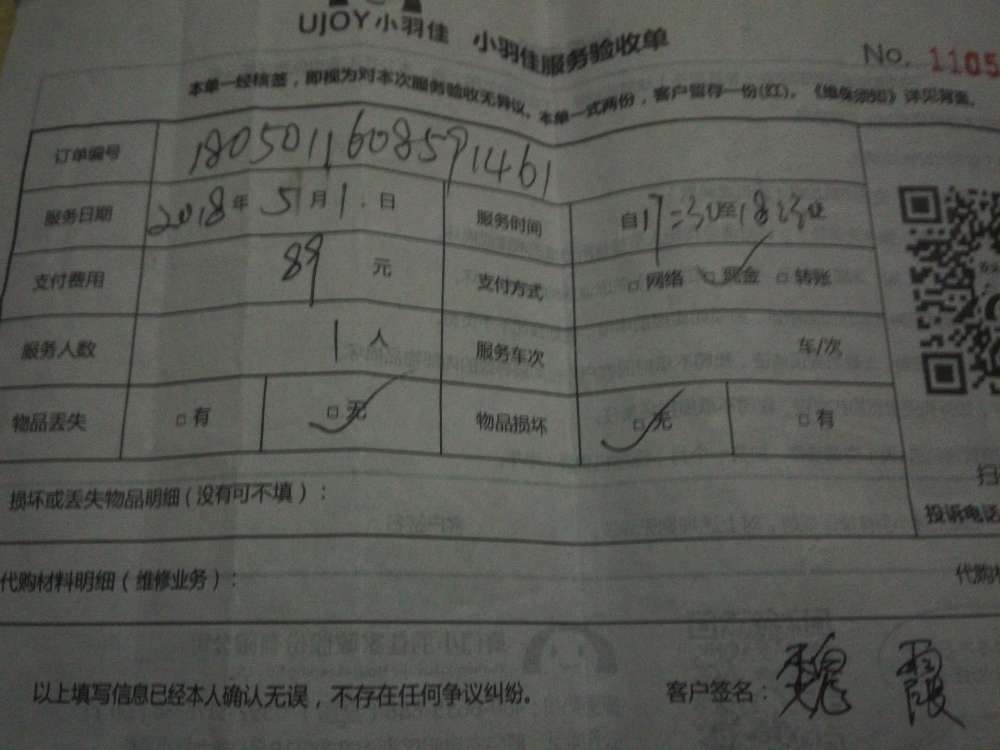 UJOY小羽佳 小羽佳服务验收单
No. 1105
本单一经核签，即视为对本次服务验收无异议。本单一式两份，客户留存一份(红)。《维保须知》详见背面。
订单编号 1805011608591461
服务日期 2018年 5月1.日 服务时间 自17:30至18:30
支付费用 89 元 支付方式 □网络 □现金 □转账
服务人数 1人 服务车次 车/次
物品丢失 □有 □无 物品损坏 □无 □有
损坏或丢失物品明细(没有可不填)：
投诉电话
代购材料明细(维修业务)：
代购
以上填写信息已经本人确认无误，不存在任何争议纠纷。 客户签名：魏霞